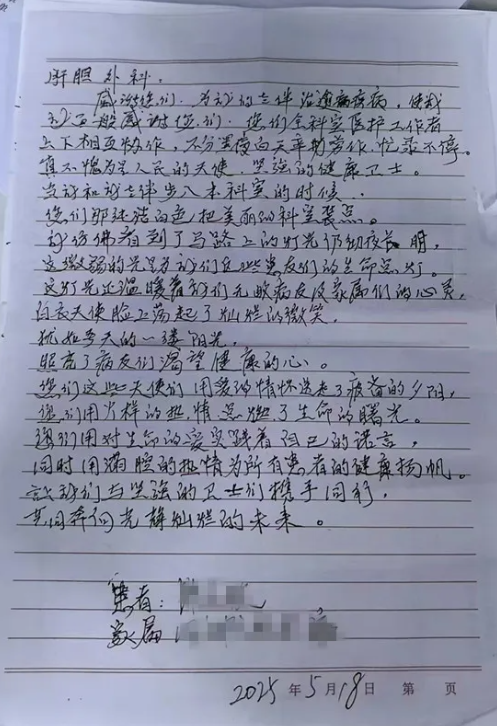 肝胆外科。
感谢您们。为我的老伴治愈病疾病,使我
们全科室医护工作者
上下相互协作,不分黑夜白天辛勤劳作,忙录不停。
真不愧为是人民的天使,坚强的健康卫士。
当我和我老伴步入本科室的时候,
您们那洁白把美丽的科室装点。
我仿佛看到了马路上的灯光仍彻夜长明,
这微弱的光是为我们这些患友们的生命点灯。
这灯光还温暖着我们无数病友及家属们的心灵,
白衣天使脸上荡起了灿烂的微笑。
犹如冬天的一缕阳光。
照亮了病友们渴望健康的心。
您们这些天使们用爱的情怀送来了疲惫的夕阳,
您们用火样的热情点燃了生命的曙光。
您们用对生命的爱实践着自己的诺言,
同时用满腔的热情为所有患者的健康扬帆。
我们与坚强的卫士们携手同行,
共同奔向光静灿烂的未来。
患者:
家属
2025年5月18日 第 页